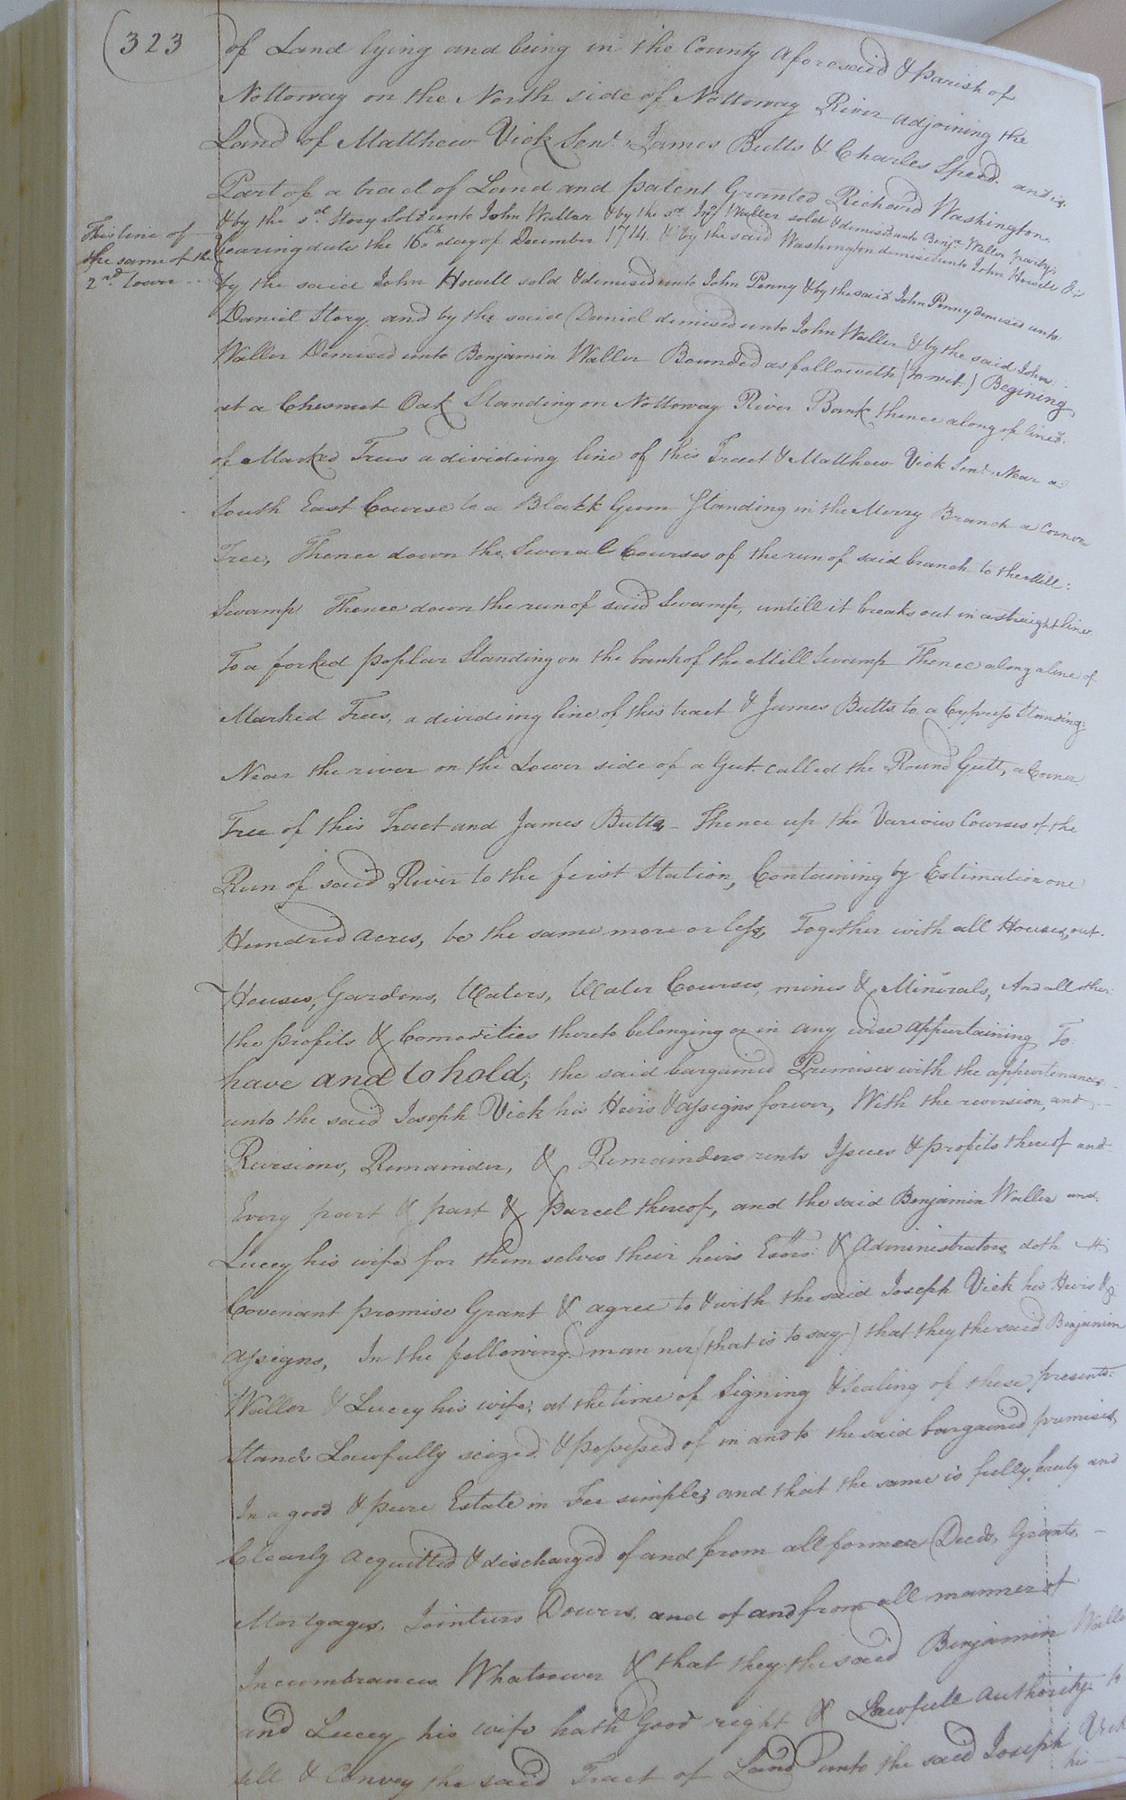 (323
of Land lying and being in the County aforesaid & parish of
Nottoway on the North side of Nottoway River adjoining the
Land of Matthew Vick Senr. James Butts & Charles Speed. and is
Part of a tract of Land and patent Granted Richard Washington
& by the sd. Story Sold unto John Waller & by the sd. Jno. Waller sold & demised unto Benja. Waller party
This line of
the same of the
2nd Town
bearing date the 16th day of December 1714. & by the said Washington demised unto John Howell &
by the said John Howell sold & demised unto John Penny & by the said John Penny demised unto
Daniel Story. and by the said Daniel demised unto John Waller & by the said John
Waller Demised unto Benjamin Waller Bounded as followeth (to wit.) Begining
at a Chesnut Oak Standing on Nottoway River Bank, thence along of line
of Marked Trees a divideing line of this Tract & Matthew Vick Senr. Near a
South East Course to a Blakk Gum Standing in the Merry Branch a Corner
Tree, Thence down the Several Courses of the run of said branch to the Mill
Swamp Thence down the run of said Swamp, untill it breaks out in a straight line
To a forked poplar Standing on the bank of the Mill Swamp Thence along a line of
Marked Trees, a divideing line of this tract & James Butts to a Cypress Standing
Near the river on the Lower side of a Gut called the Round Gutt, a Corner
Tree of this Tract and James Butts - Thence up the Various Courses of the
Run of said River to the first Station, Containing by Estimation one
Hundred acres, be the same more or less, Together with all Houses, out-
Houses, Gardens, Waters, Water Courses, mines & Minerals, And all other
the profits & Comodities thereto belonging or in any wise appertaining To
have and to hold; the said bargained Premises with the appurtenances
unto the said Joseph Vick his Heirs & assigns forever, With the reversion, and
Reversions, Remainder, & Remainders rents Issues & profits thereof and
Every part & part & parcel thereof, and the said Benjamin Waller and
Lucey his wife for them selves their heirs Exors: & Administrators doth
Covenant promise Grant & agree to & with the said Joseph Vick his Heirs &
assigns, In the following man ner (that is to say) that they the said Benjamin
Waller & Lucey his wife; at the time of Signing & sealing of these presents
Stands Lawfully seized & possessed of in and to the said bargained premises
In a good & pure Estate in Fee simple; and that the same is fully, freely and
Clearly acquitted & discharged of and from all former Deeds, Grants, -
Mortgages, Jointurs Dowers, and of and from all manner of
Incumbrances Whatsoever & that they the said Benjamin Waller
and Lucey his wife hath Good right & Lawfull authority to
sell & Convey the said Tract of Land unto the said Joseph Vick
his